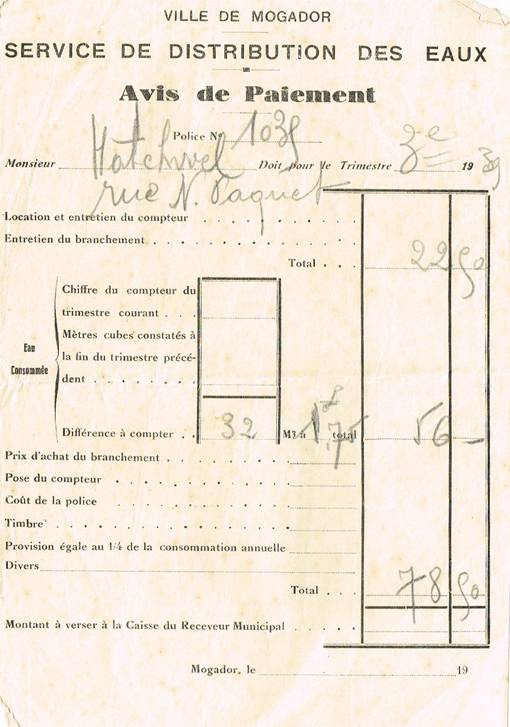 VILLE DE MOGADOR
SERVICE DE DISTRIBUTION DES EAUX
Avis de Paiement
Police No 1035
Monsieur Hatchwel Doit pour le Trimestre 3e 1939
rue N. Paquet
Location et entretien du compteur
Entretien du branchement
Total 22 50
Chiffre du compteur du
trimestre courant
Mètres cubes constatés à
la fin du trimestre précé-
dent
Eau
Consommée
Différence à compter 32 M3 à 1,75 total 56 —
Prix d'achat du branchement
Pose du compteur
Coût de la police
Timbre
Provision égale au 1/4 de la consommation annuelle
Divers
Total 78 50
Montant à verser à la Caisse du Receveur Municipal
Mogador, le 19